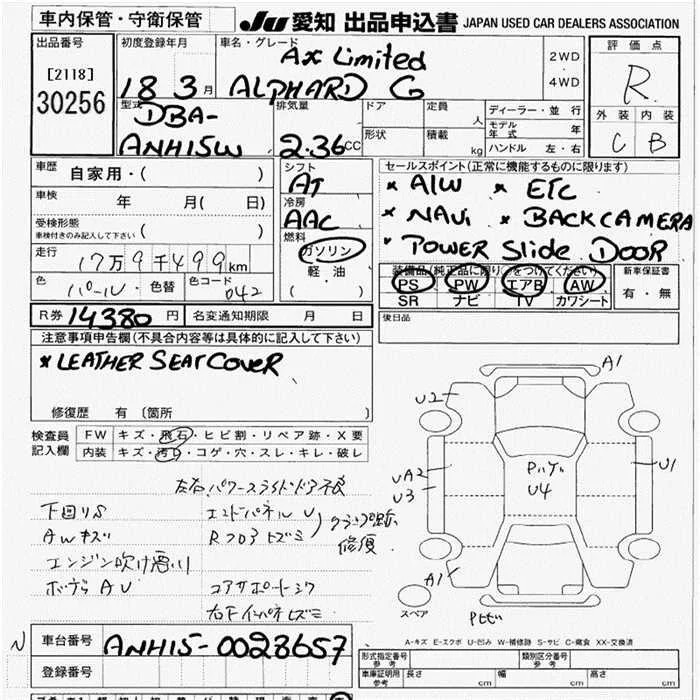 車内保管・守衛保管
JU 愛知 出品申込書 JAPAN USED CAR DEALERS ASSOCIATION
出品番号
[2118]
30256
初度登録年月
18 3月
車名・グレード
AX Limited
ALPHARD G
2WD
4WD
評価点
R
外装 内装
C B
型式
DBA-
ANH15W
排気量
2.36CC
ドア
定員
人
形状
積載
kg
ディーラー・並行
モデル年式 年
ハンドル 左・右
車歴
自家用・( )
車検
年 月( 日)
受検形態
車検付きのみ記入して下さい ( )
走行
17万9千499km
色 パール 色替 色コード 042
シフト
AT
冷房
AAC
燃料
ガソリン
軽油
( )
セールスポイント(正常に機能するものに限ります)
* A/W * ETC
* NAVi * BACK CAMERA
* POWER Slide DOOR
装備品(純正品に限り○をつけてください)
PS PW エアB AW
SR ナビ TV カワシート
新車保証書
有・無
R券 14380円 名変通知期限 月 日
後日品
注意事項申告欄(不具合内容等は具体的に記入して下さい)
* LEATHER SEAT COVER
修復歴 有〔箇所 〕
検査員記入欄
FW キズ・飛石・ヒビ割・リペア跡・X要
内装 キズ・汚れ・コゲ・穴・スレ・キレ・破レ
左右パワースライドドア不良
下回りS エンドパネルU
AWキズ Rフロアヒズミ
クランプ跡
修復
エンジン吹け悪い
ボデーAU コアサポートシワ
右Fインパネヒズミ
A1
U2
UA2
U3
U1
U4
A1
スペア
A-キズ E-エクボ U-凹み W-補修跡 S-サビ C-腐食 XX-交換済
N
車台番号 ANH15-0028657
登録番号
形式指定番号 参考
類別区分番号 参考
車庫証明用 参考 長さ cm 幅 cm 高さ cm